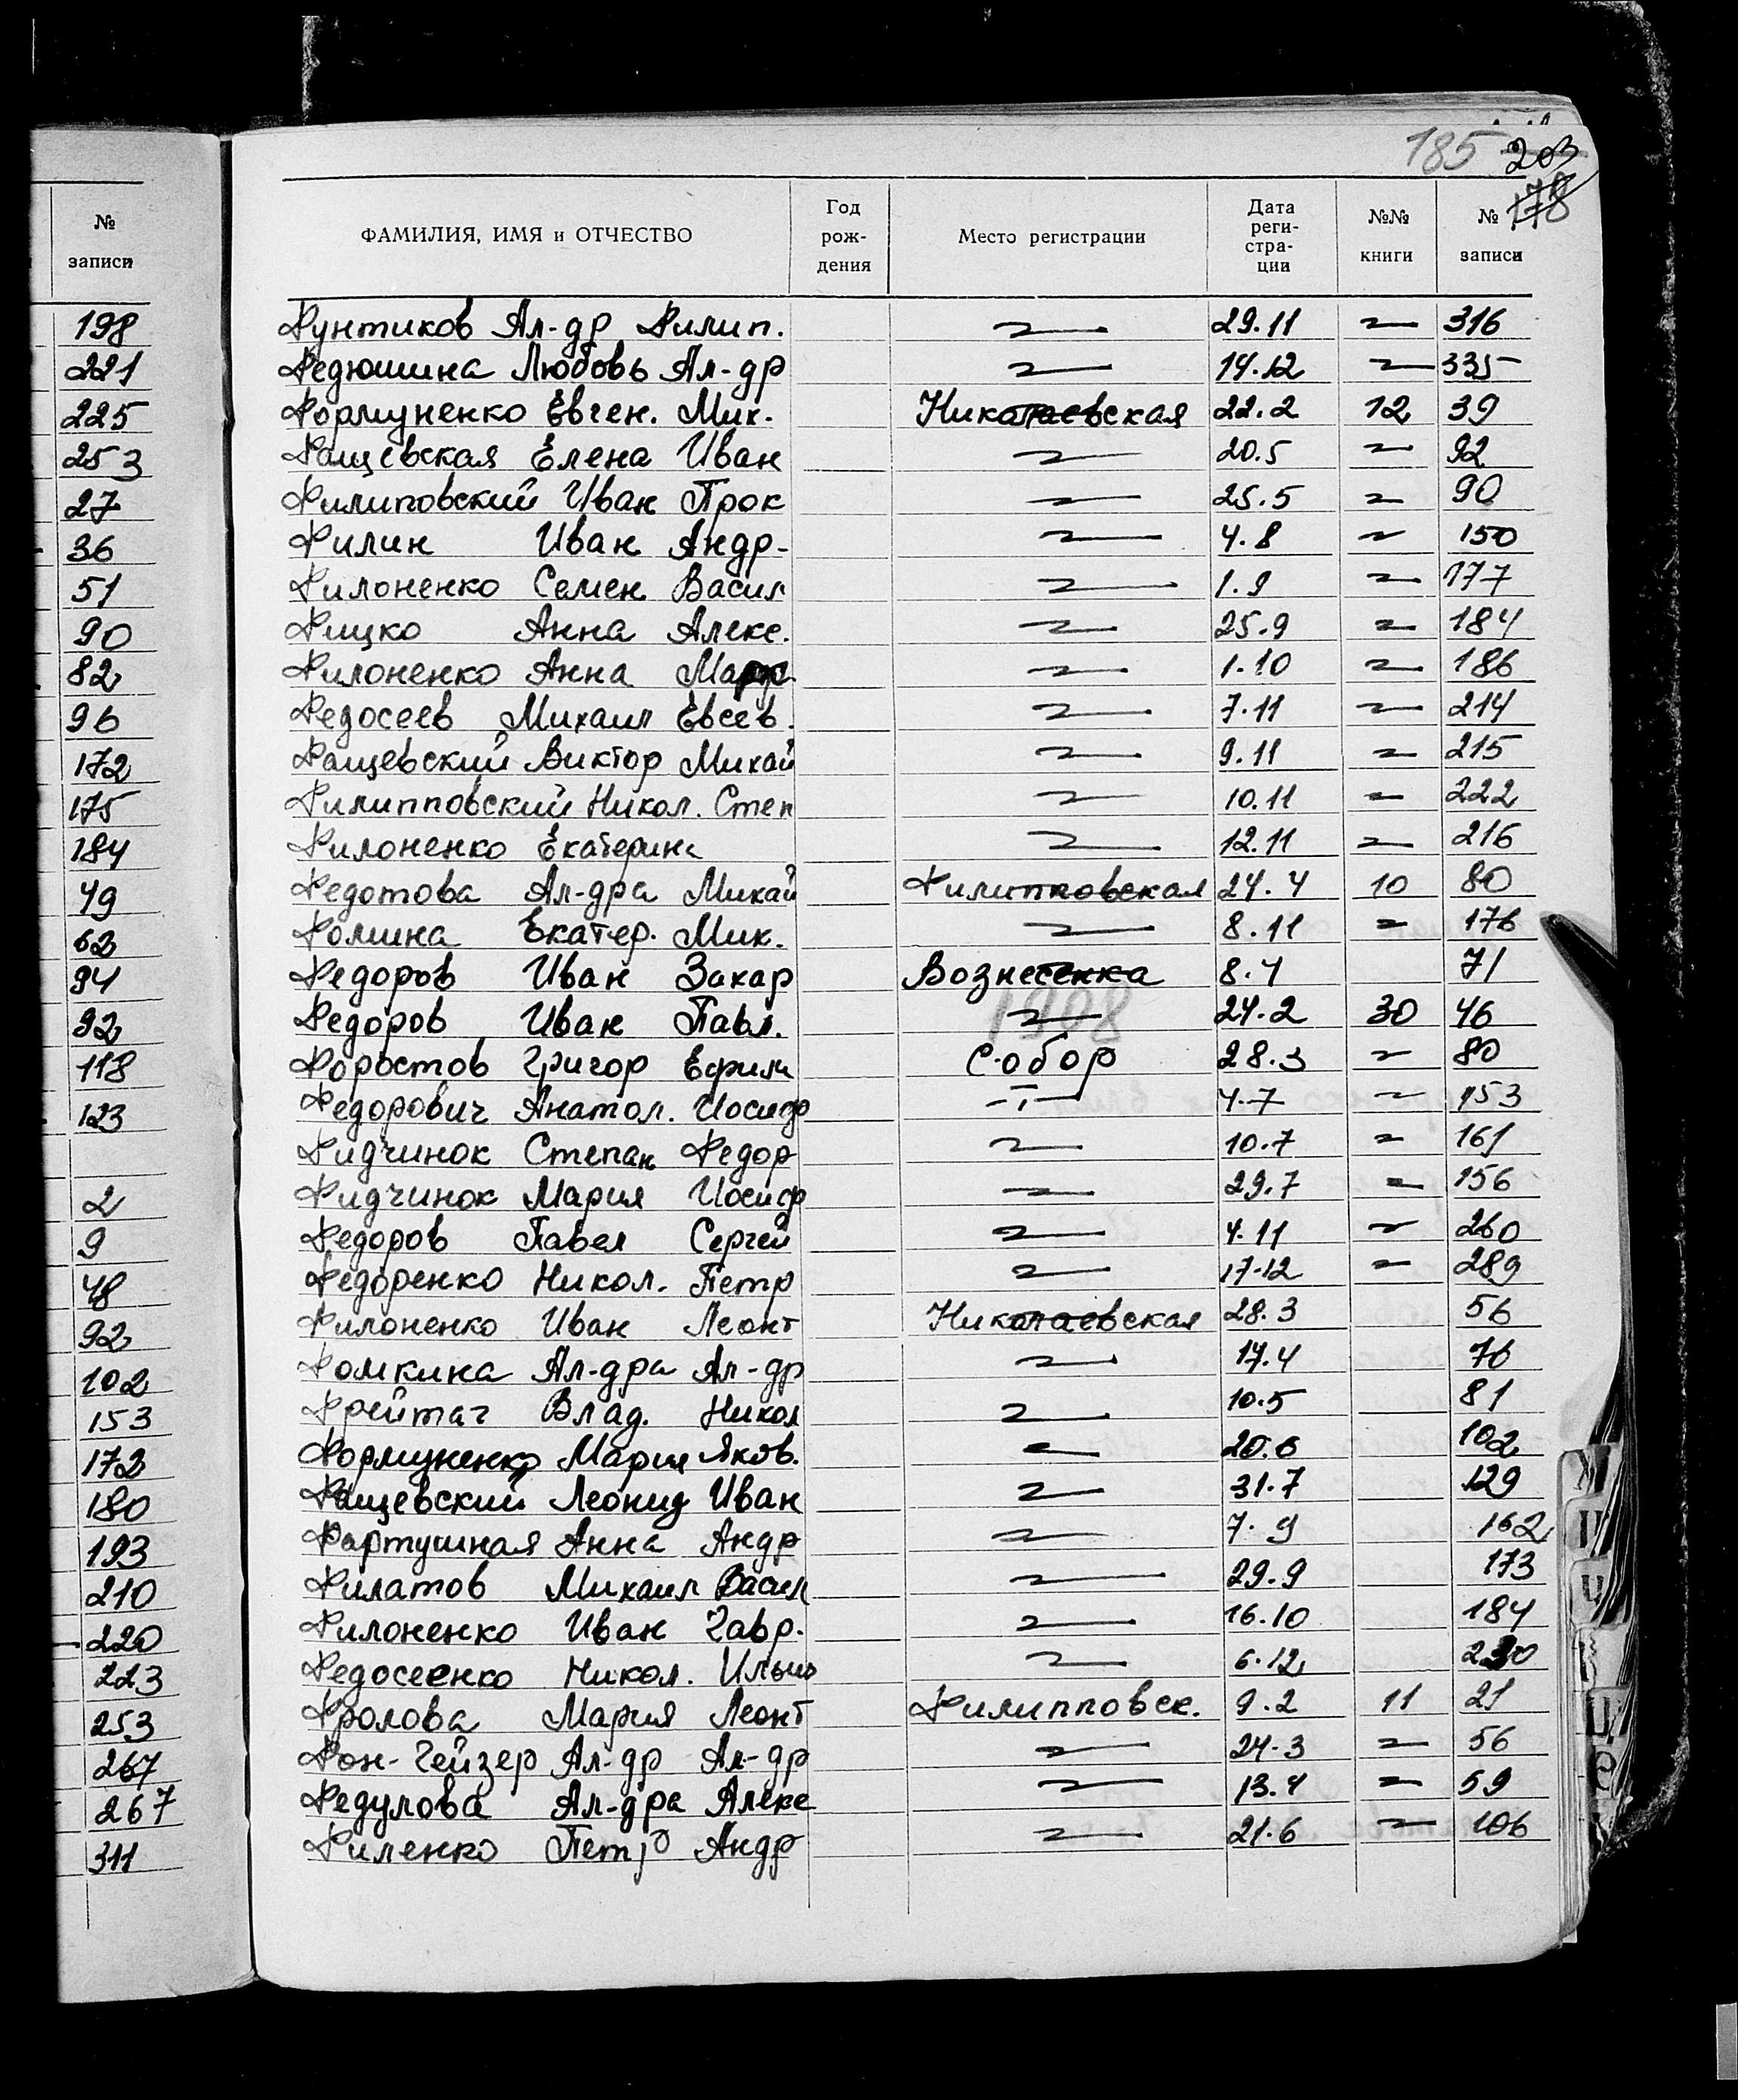 185 203
178
№
записи
ФАМИЛИЯ, ИМЯ и ОТЧЕСТВО Год рож- дения Место регистрации Дата реги- стра- ции №№ книги № записи
198
221
225
253
27
36
51
90
82
96
172
175
184
49
62
94
92
118
123
2
9
48
92
102
153
172
180
193
210
220
223
253
267
267
311
Фунтиков Ал-др Филип. 29.11 316
Федюшина Любовь Ал-др 14.12 335
Формуненко Евген. Мик. Николаевская 22.2 12 39
Фащевская Елена Иван 20.5 92
Филиповский Иван Прок 25.5 90
Филин Иван Андр- 4.8 150
Филоненко Семен Васил 1.9 177
Фицко Анна Алекс. 25.9 184
Филоненко Анна 1.10 186
Федосеев Михаил Евсев. 7.11 214
Фащевский Виктор Михай 9.11 215
Филипповский Никол. Степ 10.11 222
Филоненко Екатерина 12.11 216
Федотова Ал-дра Михай Филипповская 24.4 10 80
Фомина Екатер. Мик. 8.11 176
Федоров Иван Захар Вознесенка 8.4 71
1908
Федоров Иван Павл. 24.2 30 46
Форостов Григор Ефим Собор 28.3 80
Федорович Анатол. Иосиф -"- 4.7 153
Фидчинок Степан Федор 10.7 161
Фидчинок Мария Иосиф 29.7 156
Федоров Павел Сергей 4.11 260
Федоренко Никол. Петр 17.12 289
Филоненко Иван Леонт Николаевская 28.3 56
Фомкина Ал-дра Ал-др 17.4 76
Фрейтаг Влад. Никол 10.5 81
Формуненко Мария Яков. 20.6 102
Фащевский Леонид Иван 31.7 129
Фартушная Анна Андр 7.9 162
Филатов Михаил Васил 29.9 173
Филоненко Иван Гавр. 16.10 184
Федосеенко Никол. Ильич 6.12 230
Фролова Мария Леонт Филипповск. 9.2 11 21
Фон-Гейзер Ал-др Ал-др 24.3 56
Федулова Ал-дра Алекс 13.4 59
Филенко Петр Андр 21.6 106